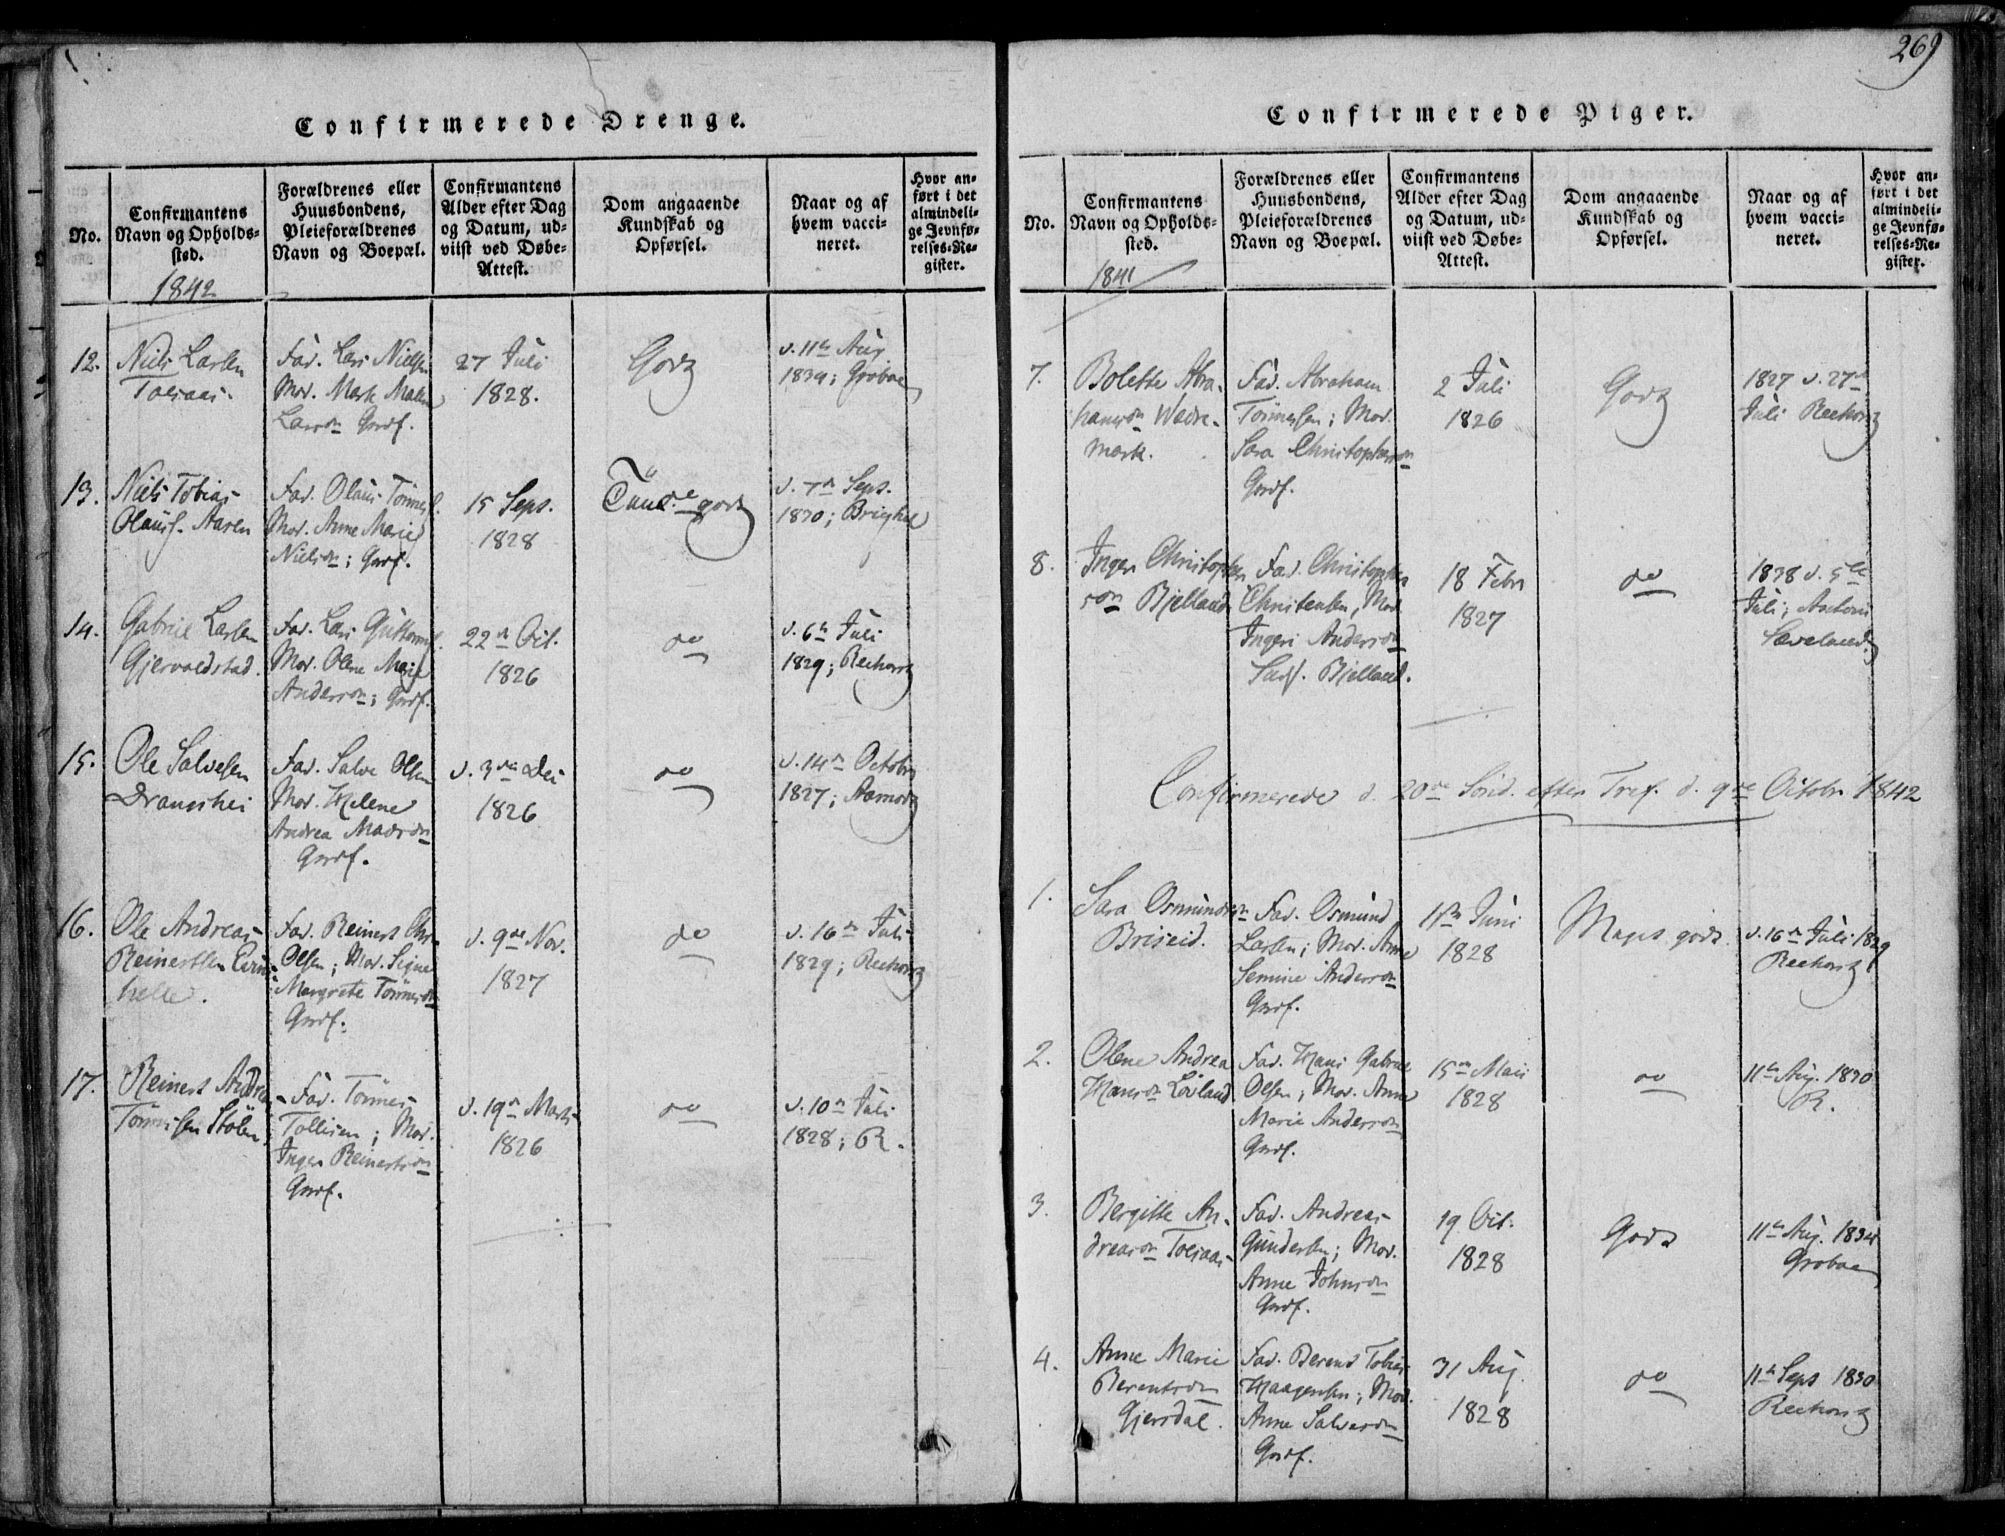 269
Confirmerede Drenge.
No.
Confirmantens
Navn og Opholds-
sted.
Forældrenes eller
Huusbondens,
Pleieforældrenes
Navn og Boepæl.
Confirmantens
Alder efter Dag
og Datum, ud-
viist ved Døbe-
Attest.
Dom angaaende
Kundskab og
Opførsel.
Naar og af
hvem vacci-
neret.
Hvor an-
ført i det
almindeli-
ge Jevnfø-
relses-Re-
gister.
1842
12.
Niels Larsen
Toesaas.
Fad. Lars Nielsen
Mor. Malene
Larsdn Gmdf.
27 Juli
1828.
Godt
d. 11te Aug
1834; Grobae
13.
Niels Tobias
Olausf. Aaren
Fad. Olaus Tönnesf.
Mor. Anne Marie
Nielsdn; Gmdf.
15 Sept.
1828
godt
d. 7de Sept.
1830;
14.
Gabriel Larsen
Gjervoldstad.
Fad. Lars Guttormsf.
Mor. Olene Marie
Andersdn; Gmdf.
22de Oct.
1826
do
d. 6te Juli
1829; Reehorst
15.
Ole Salvesen
Drangshei
Fad. Salve Olsen
Mor. Helene
Andrea Madsdn
Gmdf.
d. 3die Dec
1826
do
d. 14de Octobr
1827; Aamodt
16.
Ole Andreas
Reinertsen
helle.
Fad. Reinert Chr.
Olsen; Mor. Signe
Margrete Tönnesdn
Gmdf.
d. 9de Nov.
1827
do
d. 16de Juli
1829; Reehorst
17.
Reinert Andreas
Tönnesen Stölen
Fad. Tönnes
Tollisen; Mor.
Inger Reinertsdn
Gmdf.
d. 19de Marts
1826
do
d. 10de Juli
1828; R.
Confirmerede Piger.
No.
Confirmantens
Navn og Opholds-
sted.
Forældrenes eller
Huusbondens,
Pleieforældrenes
Navn og Boepæl.
Confirmantens
Alder efter Dag
og Datum, ud-
viist ved Døbe-
Attest.
Dom angaaende
Kundskab og
Opførsel.
Naar og af
hvem vacci-
neret.
Hvor an-
ført i det
almindeli-
ge Jevnfø-
relses-Re-
gister.
1841
7.
Bolette Abra-
hamsdn Wedre-
mark.
Fad. Abraham
Tönnessen; Mor.
Sara Christophersdn
Gmdf.
2 Juli
1826
Godt
1827 d. 27de
Juli Reehorst
8.
Inger Christopher
sdn Bjelland
Fad. Christopher
Christensen, Mor
Ingeri Andersdn
Bjelland.
18 Febr
1827
do
1838 d. 5te
Juli;
Confirmerede d. 20de Sönd. efter Tref. d. 9de Octobr 1842
1.
Sara Osmundsdn
Briseid.
Fad. Osmund
Larsen; Mor. Anne
Semine Andersdn
Gmdf.
11te Juni
1828
Meget godt.
d. 16de Juli 1829
Reehorst
2.
Olene Andrea
Hansdn Lövland
Fad. Hans Gabriel
Olsen; Mor. Anne
Marie Andersdn
Gmdf.
15de Mai
1828
do
11te Aug. 1830
R.
3.
Bergitte An-
dreasdn Toesaas
Fad. Andreas
Gundersen; Mor.
Anne Johnsdn
Gmdf.
19 Oct.
1828
Godt
11te Aug. 1834
Grobae
4.
Anne Marie
Berentsdn
Gjersdal.
Fad. Berend Tobias
Haagensen; Mor.
Anne Salvesdn
Gmdf.
31 Aug.
1828
do
11te Sept 1830
Reehorst